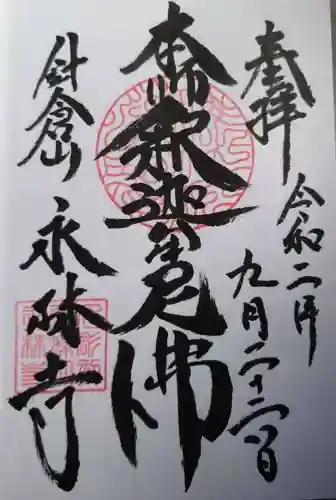 奉拝
令和二年
九月二十二日
本師釈迦牟尼佛
針倉山
永林寺